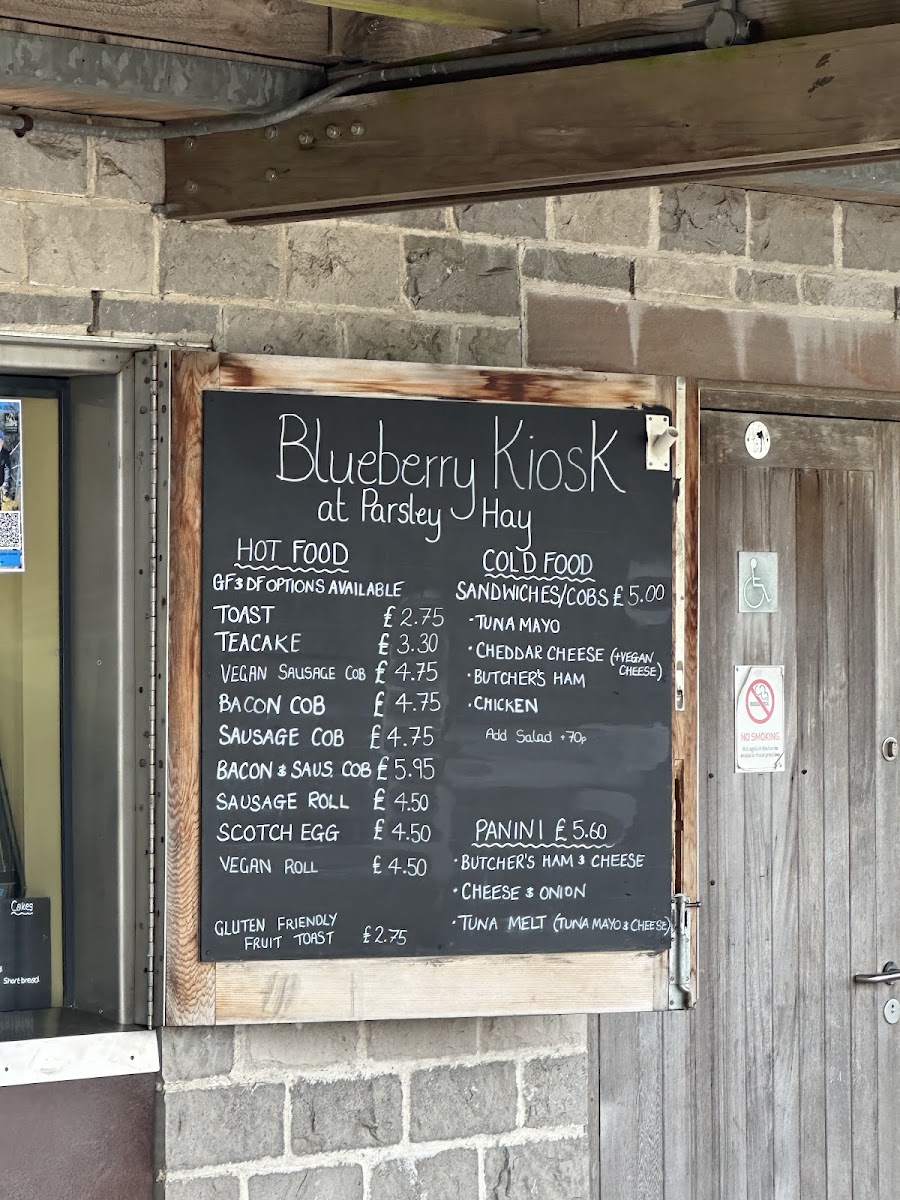 Blueberry Kiosk
at Parsley Hay
HOT FOOD
GF & DF OPTIONS AVAILABLE
TOAST £2.75
TEACAKE £3.30
VEGAN SAUSAGE COB £4.75
BACON COB £4.75
SAUSAGE COB £4.75
BACON & SAUS. COB £5.95
SAUSAGE ROLL £4.50
SCOTCH EGG £4.50
VEGAN ROLL £4.50
GLUTEN FRIENDLY
FRUIT TOAST £2.75
COLD FOOD
SANDWICHES/COBS £5.00
· TUNA MAYO
· CHEDDAR CHEESE (+VEGAN
CHEESE)
· BUTCHER'S HAM
· CHICKEN
Add Salad +70p
PANINI £5.60
· BUTCHER'S HAM & CHEESE
· CHEESE & ONION
· TUNA MELT (TUNA MAYO & CHEESE)
Cakes
Shortbread
NO SMOKING